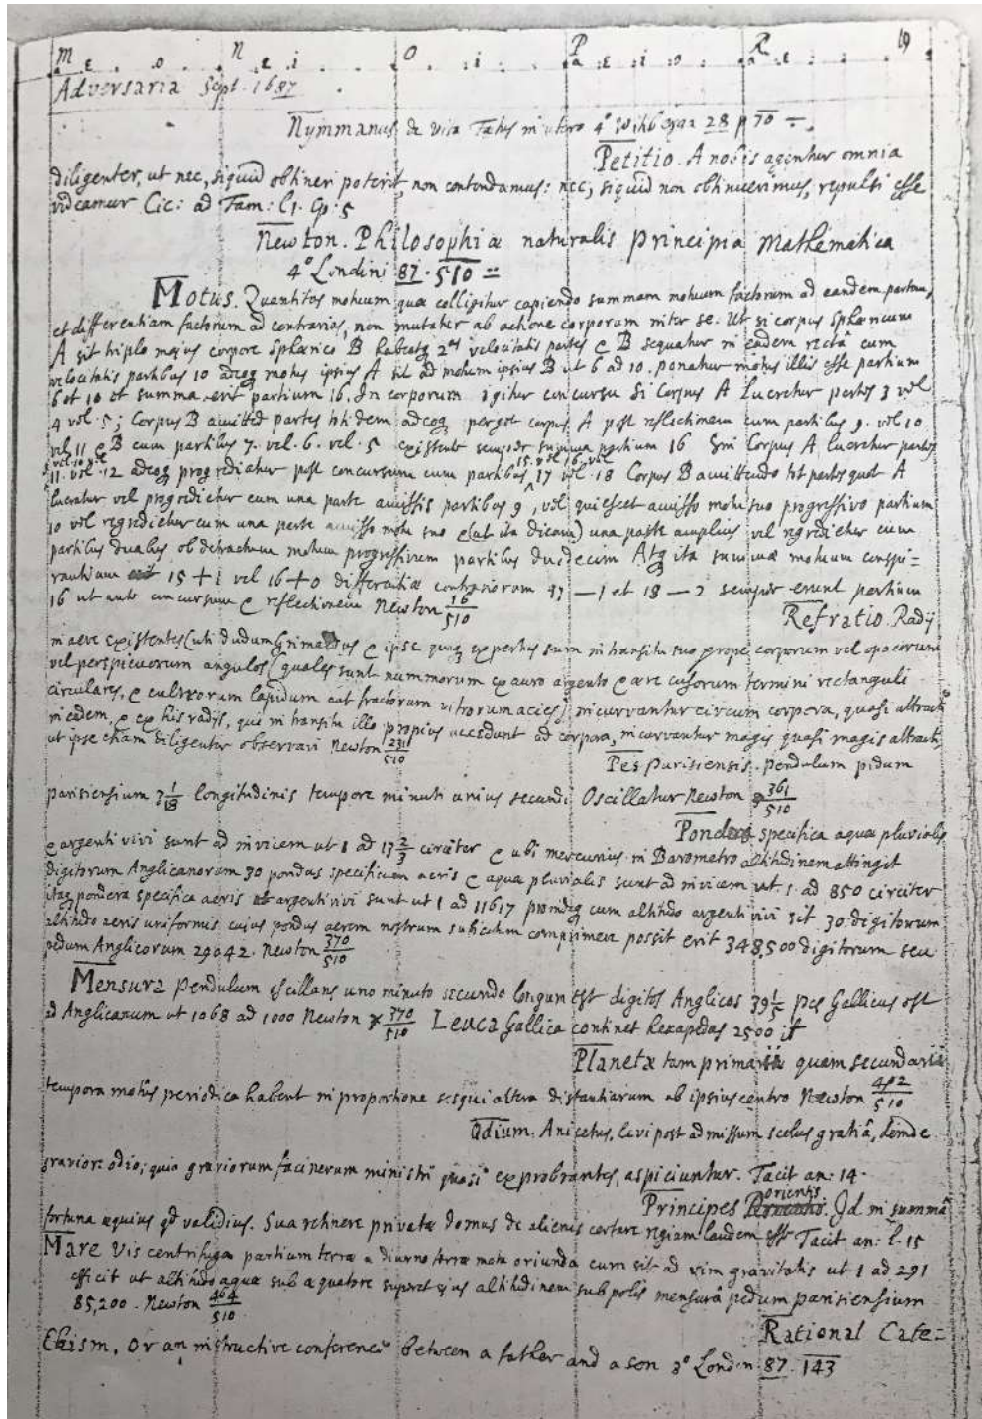 M N O P R 19
a . e . i . o . a . e . i . o . i . a . e . i . o . a . e .
Adversaria Sept. 1687
Nymmanus de vita faetus in utero 4° Witteb 28 p 70
Petitio. A nobis agentur omnia
diligenter, ut nec, siquid obtineri poterit, non contendamus: nec, siquid non obtinuerimus, repulsi esse
videamur Cic: ad Fam: l1. Ep: 5
Newton. Philosophiæ naturalis principia Mathematica
4° Londini 87. 510
Motus. Quantitas motuum quæ colligitur capiendo summam motuum factorum ad eandem partem,
et differentiam factorum ad contrarias, non mutatur ab actione corporum inter se. Ut si corpus sphæricum
A sit triplo majus corpore sphærico B habeatq 2as velocitatis partes & B sequatur in eadem recta cum
velocitatis partibus 10 adeoq motus ipsius A sit ad motum ipsius B ut 6 ad 10. ponatur motus illis esse partium
6 et 10 et summa erit partium 16. In corporum igitur concursu si Corpus A lucretur partes 3 vel
4 vel 5; Corpus B amittet partes totidem adeoq perget corpus A post reflectionem cum partibus 9. vel 10
vel 11 & B cum partibus 7. vel. 6. vel. 5 existente semper summa partium 16 Sin Corpus A lucretur partes
9 vel 10 vel 15. vel 16. vel
11. vel. 12 adeoq progrediatur post concursum cum partibus 17 vel. 18 Corpus B amittendo tot partes quot A
lucratur vel progredietur cum una parte amissis partibus 9, vel quiescet amisso motu suo progressivo partium
10 vel regredietur cum una parte amisso motu suo &(ut ita dicam) una parte amplius vel regredietur cum
partibus duabus ob detractum motum progressivum partibus duodecim Atq ita summæ motuum conspi=
rantium 15 + 1 vel 16 + 0 differentiæ contrariorum 17 — 1 et 18 — 2 semper erunt partium
16 ut ante concursum & reflectionem Newton 16/510
Refratio. Radij
in aere existentes (uti dudum Grimaldus & ipse quoq expertus sum in transitu suo prope corporum vel opacorum
vel perspicuorum angulos (quales sunt nummorum ex auro argento & ære cusorum termini rectanguli
circulares, & cultrorum lapidum aut fractorum vitrorum acies) incurvantur circum corpora, quasi attracti
in eadem, & ex his radijs, qui in transitu illo propius accedunt ad corpora, incurvantur magis quasi magis attracti,
ut ipse etiam diligenter observavi Newton 231/510
Pes parisiensis. pendulum pedum
parisiensium 3 1/18 longitudinis tempore minuti unius secundi Oscillatur Newton 361/510
Pondera specifica aquæ pluvialis
& argenti vivi sunt ad invicem ut 1 ad 13 2/3 circiter & ubi mercurius in Barometro altitudinem attingit
digitorum Anglicanorum 30 pondus specificum aeris & aquæ pluvialis sunt ad invicem ut. 1. ad 850 circiter
itaq pondera specifica aeris & argenti vivi sunt ut 1 ad 11617 proindeq cum altitudo argenti vivi sit 30. digitorum
altitudo aeris uniformis cujus pondus aerem nostrum subjectum comprimere possit erit 348,500 digitorum seu
pedum Anglicorum 29042. Newton 370/510
Mensura Pendulum oscillans uno minuto secundo longum est digitos Anglicos 39 1/5 pes Gallicus est
ad Anglicanum ut 1068 ad 1000 Newton 370/510 Leuca Gallica continet hexapedas 2500 it
Planetæ tam primarii quam secundarii
tempora motûs periodica habent in proportione sesquialtera distantiarum ab ipsius centro Newton 402/510
Odium. Anicetus, levi post admissum scelus gratiâ, deinde
graviore odio; quia graviorum facinerum ministri quasi exprobrantes, aspiciuntur. Tacit an: 14.
orientis
Principes . Id in summâ
fortuna æquius qd validius. Sua retinere privatæ domus de alienis certare regiam laudem esse Tacit an: l. 15
Mare Vis centrifuga partium terræ a diurno terræ motu oriunda cum sit ad vim gravitatis ut 1 ad 291
efficit ut altitudo aquæ sub æquatore superet ejus altitudinem sub polis mensurâ pedum parisiensium
85,200. Newton 464/510
Rational Cate=
Ehism. Or an instructive conference between a father and a son 8° London 87. 143